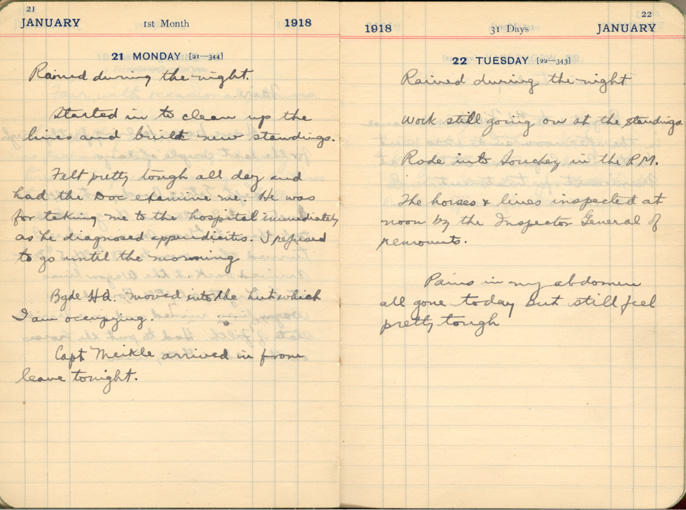 21
JANUARY 1st Month 1918
21 MONDAY [21—344]
Rained during the night.
Started in to clean up the
lines and build new standings.
Felt pretty tough all day and
had the Doc examine me. He was
for taking me to the hospital immediately
as he diagnosed appendicitis. I refused
to go until the morning
Bgde HQ. moved into the hut which
I am occupying.
Capt Meikle arrived in from
leave tonight.
22
1918 31 Days JANUARY
22 TUESDAY [22—343]
Rained during the night
Work still going on at the standings
Rode into Souchez in the P.M.
The horses & lines inspected at
noon by the Inspector General of
remounts.
Pains in my abdomen
all gone today but still feel
pretty tough